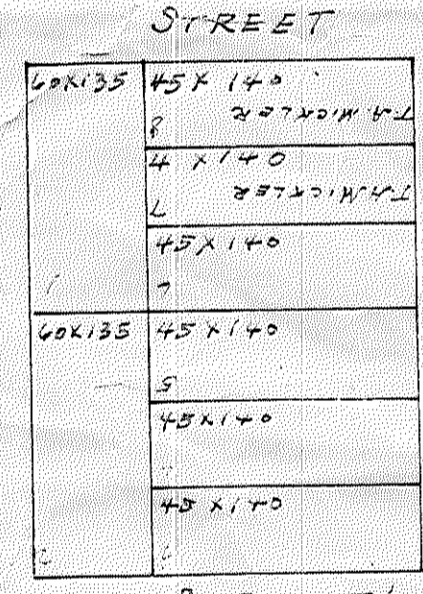 STREET
60X135
45X140
8 T.A. MICKLER
4 X140
7 T.A. MICKLER
45X140
60X135
45X140
5
45X140
45X140